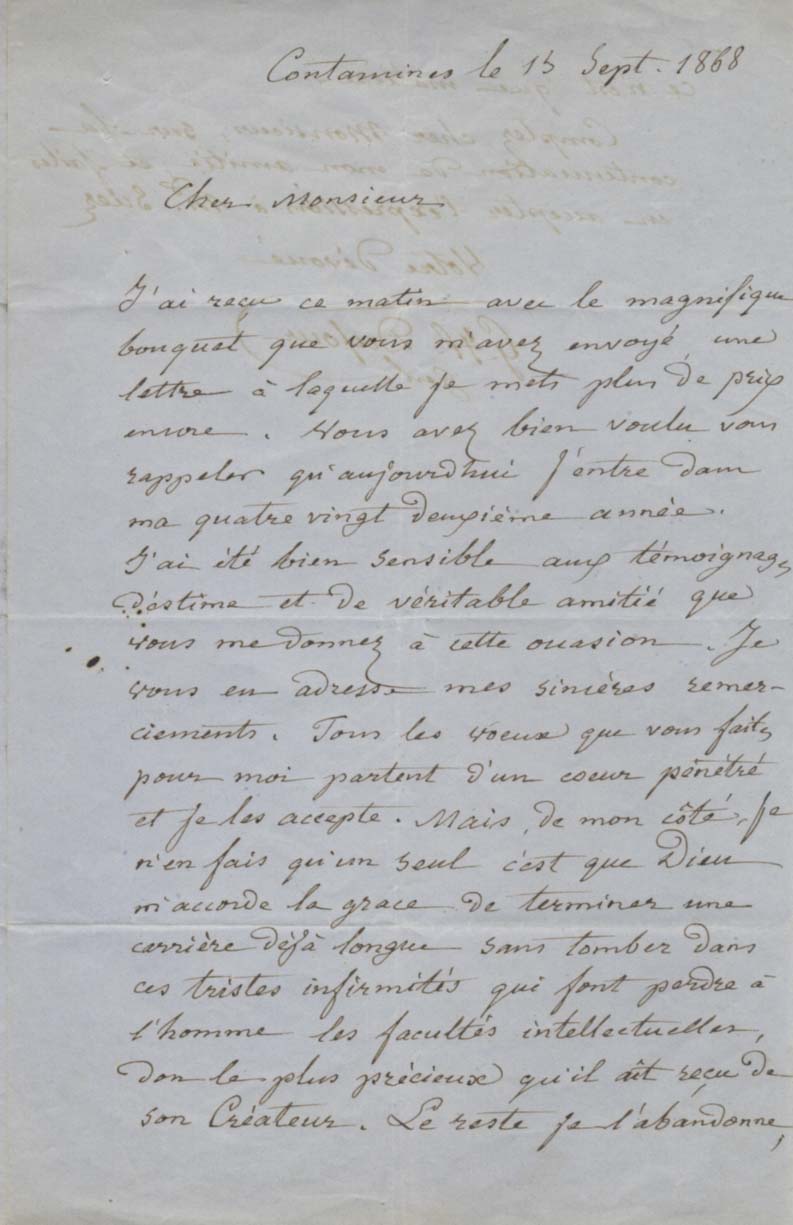 Contamines le 15 Sept. 1868
Cher Monsieur
J'ai reçu ce matin avec le magnifique
bouquet que vous m'avez envoyé, une
lettre à laquelle je mets plus de prix
encore. Vous avez bien voulu vous
rappeler qu'aujourd'hui j'entre dans
ma quatre vingt deuxième année.
J'ai été bien sensible aux témoignages
d'estime et de véritable amitié que
vous me donnez à cette occasion. Je
vous en adresse mes sincères remer-
ciements. Tous les voeux que vous faites
pour moi partent d'un coeur pénétré
et je les accepte. Mais, de mon côté, je
n'en fais qu'un seul c'est que Dieu
m'accorde la grace de terminer une
carrière déjà longue sans tomber dans
ces tristes infirmités qui font perdre à
l'homme les facultés intellectuelles,
don le plus précieux qu'il aît reçu de
son Créateur. Le reste je l'abandonne,